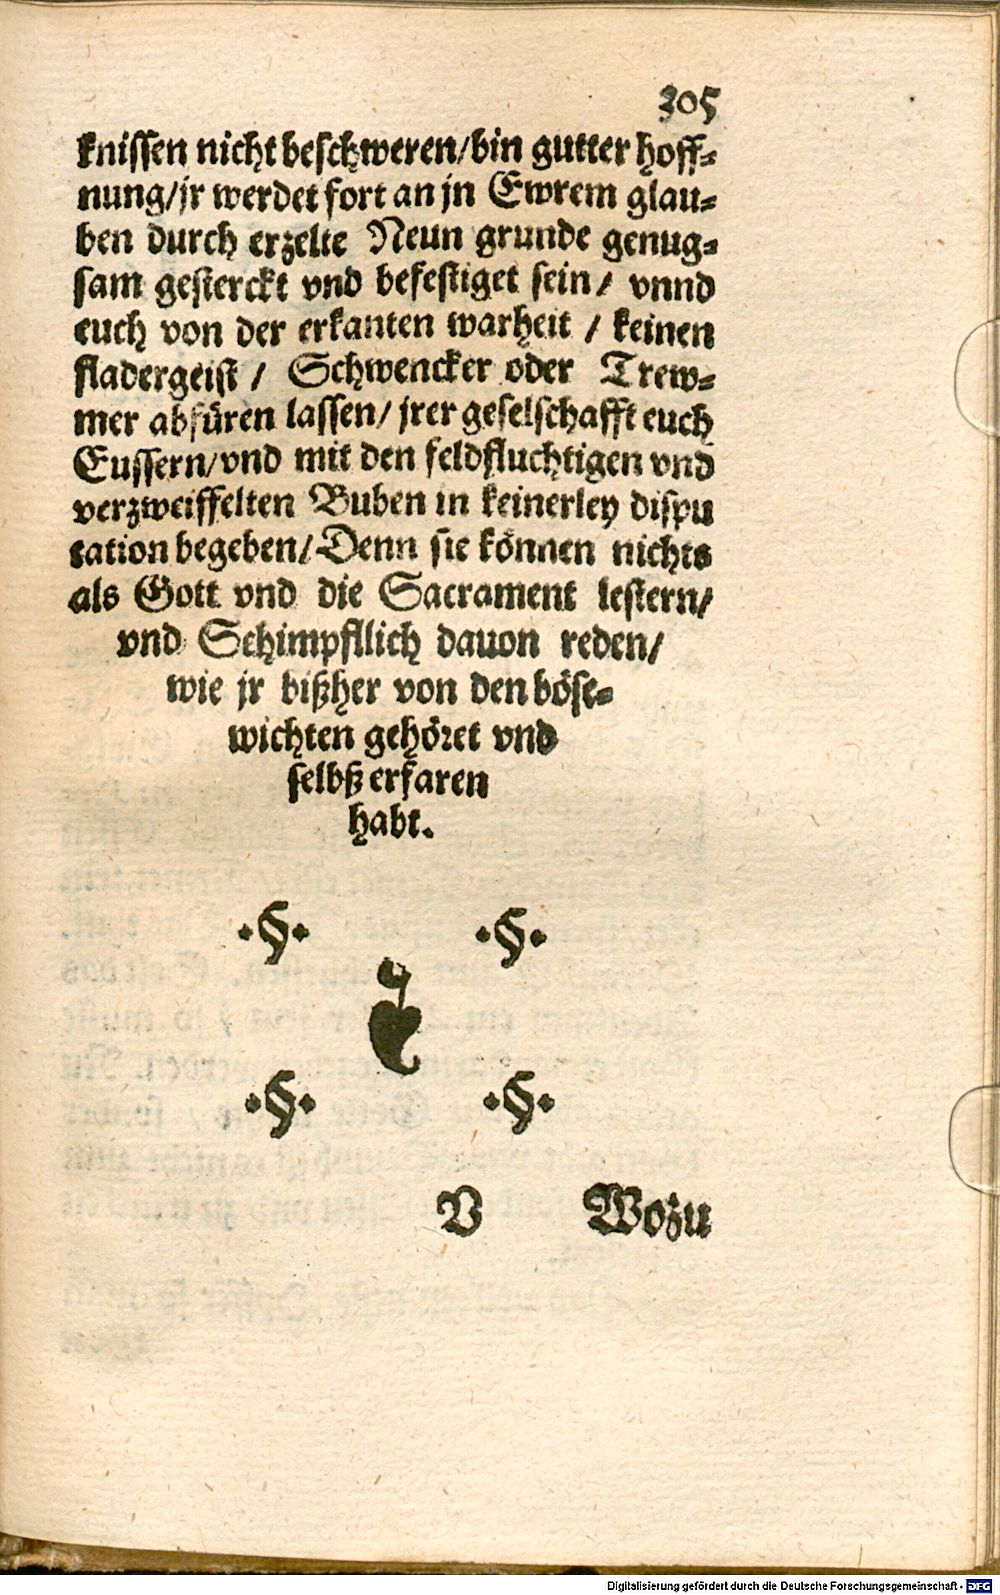 305
knissen nicht beschweren/bin gutter hoff-
nung/jr werdet fort an jn Ewrem glau-
ben durch erzelte Neun grunde genug-
sam gesterckt vnd befestiget sein/ vnnd
euch von der erkanten warheit / keinen
fladergeist / Schwencker oder Trew-
mer abfüren lassen/ jrer geselschafft euch
Eussern/vnd mit den feldfluchtigen vnd
verzweiffelten Buben in keinerley dispu
tation begeben/Denn sie können nichts
als Gott vnd die Sacrament lestern/
vnd Schimpfllich dauon reden/
wie jr bißher von den böse-
wichten gehöret vnd
selbß erfaren
habt.
·§· ·§·
❦
·§· ·§·
V Wozu
Digitalisierung gefördert durch die Deutsche Forschungsgemeinschaft - DFG